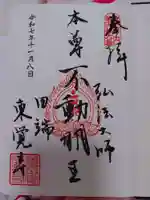 奉拝
弘法大師
本尊 不動明王
田端
東覚寺
令和七年十一月八日